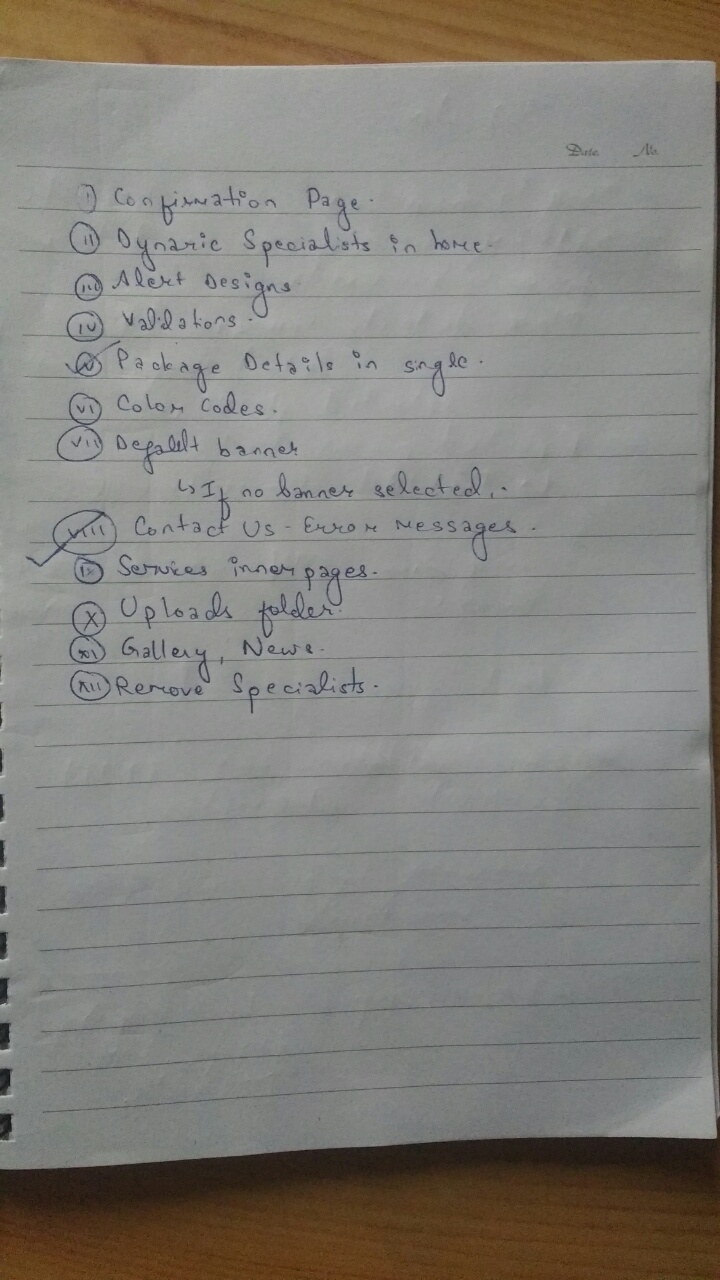 Date No.
i) Confirmation Page.
ii) Dynamic Specialists in home.
iii) Alert Designs.
iv) Validations.
v) Package Details in single.
vi) Color Codes.
vii) Defalt banner
↳ If no banner selected.
viii) Contact Us - Error Messages.
ix) Services inner pages.
x) Uploads folder.
xi) Gallery, News.
xii) Remove Specialists.